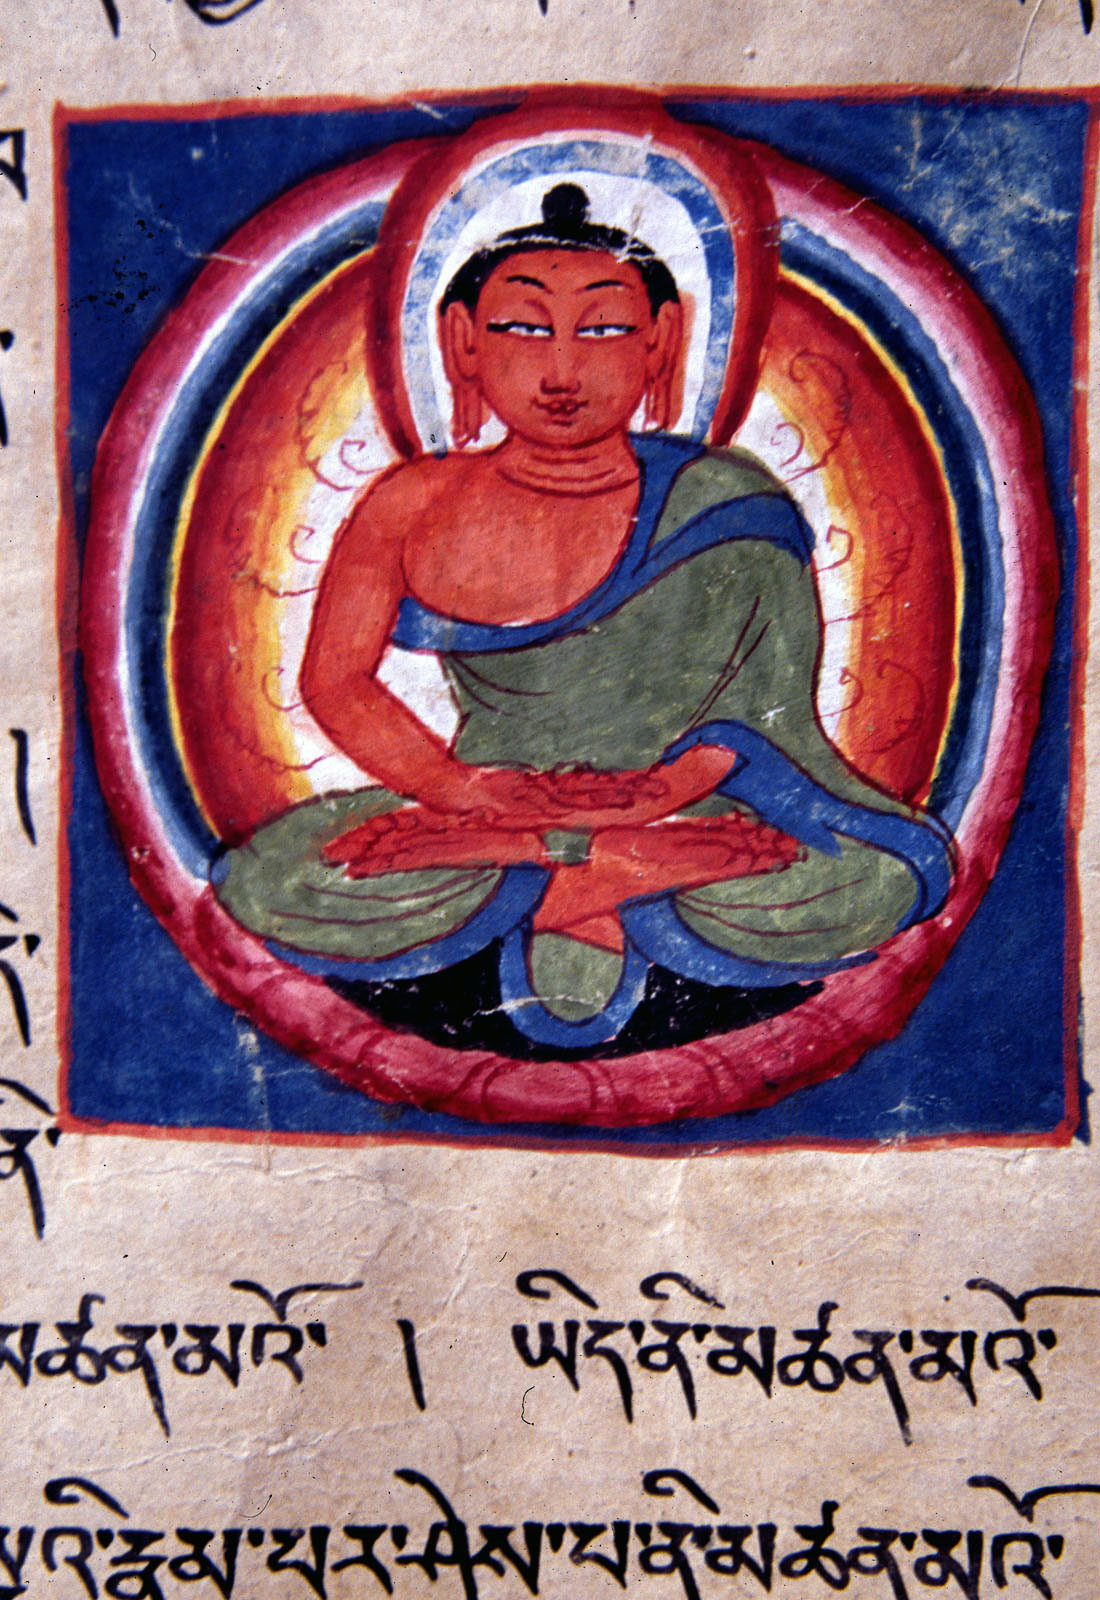 མཚན་མའོ་ ། ཡིད་ནི་མཚན་མའོ་
རྣམ་པར་ཤེས་པ་ནི་མཚན་མའོ་